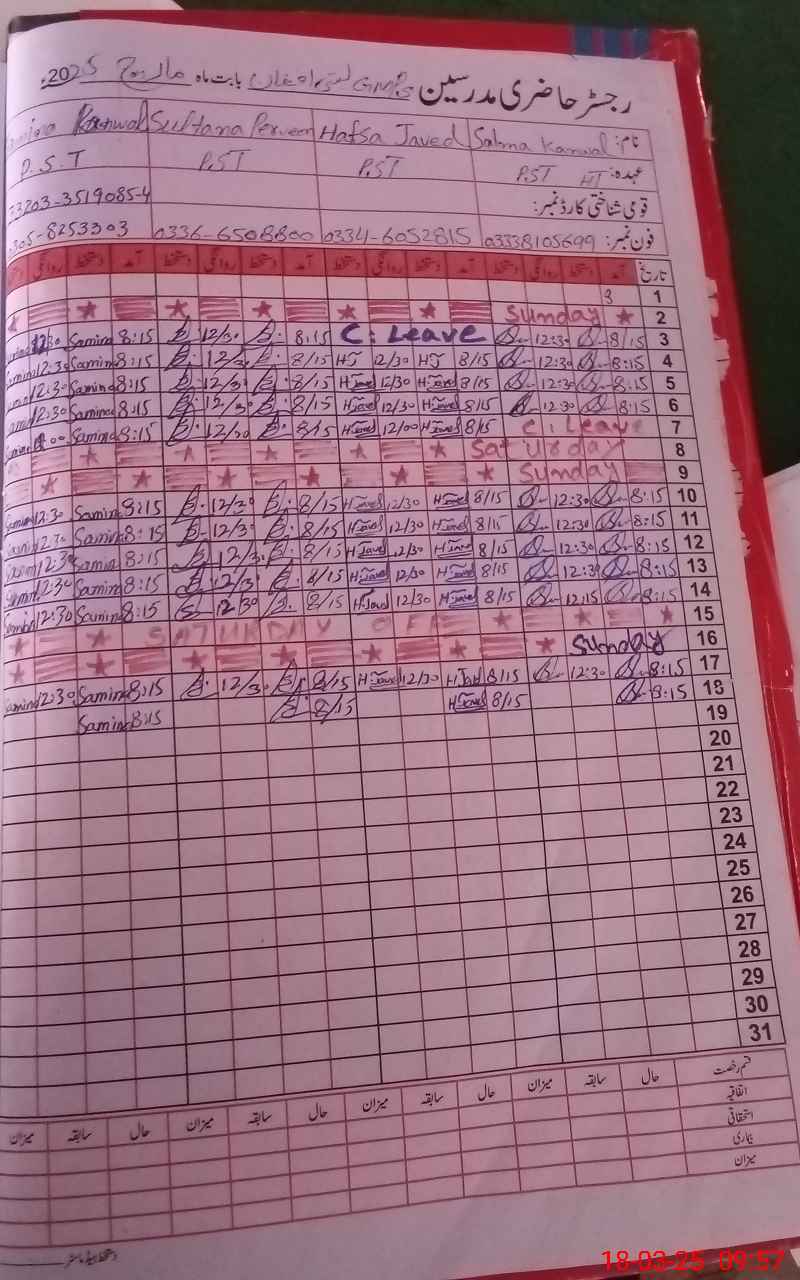 رجسٹر حاضری مدرسین GMPS بستی افغان بابت ماہ مارچ 2025ء
نام: Salma Kanwal Hafsa Javed Sultana Perveen Kanwal
عہدہ: P.ST HT P.ST P.ST P.S.T
قومی شناختی کارڈ نمبر: 3203-3519085-4
فون نمبر: 03338105699 0334-6052815 0336-6508800 0305-8253303
تاریخ آمد دستخط روانگی دستخط آمد دستخط روانگی دستخط آمد دستخط روانگی دستخط آمد دستخط روانگی
1 3
2 Sunday
3 8/15 12:30 C: Leave 8:15 12/30 8:15 Samina 12:30
4 8:15 12:30 8/15 HJ 12/30 HJ 8/15 12/30 8:15 Samina 12:30
5 8:15 12:30 8/15 H Javed 12/30 H Javed 8/15 12/30 8:15 Samina 12:30
6 8:15 12:30 8/15 H Javed 12/30 H Javed 8/15 12/30 8:15 Samina 12:30
7 C: Leave 8/15 H Javed 12/00 H Javed 8/15 12/30 8:15 Samina
8 Saturday
9 Sunday
10 8:15 12:30 8/15 H Javed 12/30 H Javed 8/15 12/30 8:15 Samina 12:30
11 8:15 12:30 8/15 H Javed 12/30 H Javed 8/15 12/30 8:15 Samina 12:30
12 8:15 12:30 8/15 H Javed 12/30 H Javed 8/15 12/30 8:15 Samina 12:30
13 8:15 12:30 8/15 H Javed 12/30 H Javed 8/15 12/30 8:15 Samina 12:30
14 8:15 12:15 8/15 H Javed 12/30 H Javed 8/15 12/30 8:15 Samina 12:30
15 SATURDAY OFF
16 Sunday
17 8:15 12:30 8/15 H Javed 12/30 H Javed 8/15 12/30 8:15 Samina 12:30
18 8:15 8/15 H Javed 8/15 8:15 Samina
19
20
21
22
23
24
25
26
27
28
29
30
31
قسم رخصت حال سابقہ میزان حال سابقہ میزان حال سابقہ میزان حال سابقہ میزان
اتفاقیہ
استحقاقی
بیماری
میزان
دستخط ہیڈ ماسٹر
18-03-25 09:57